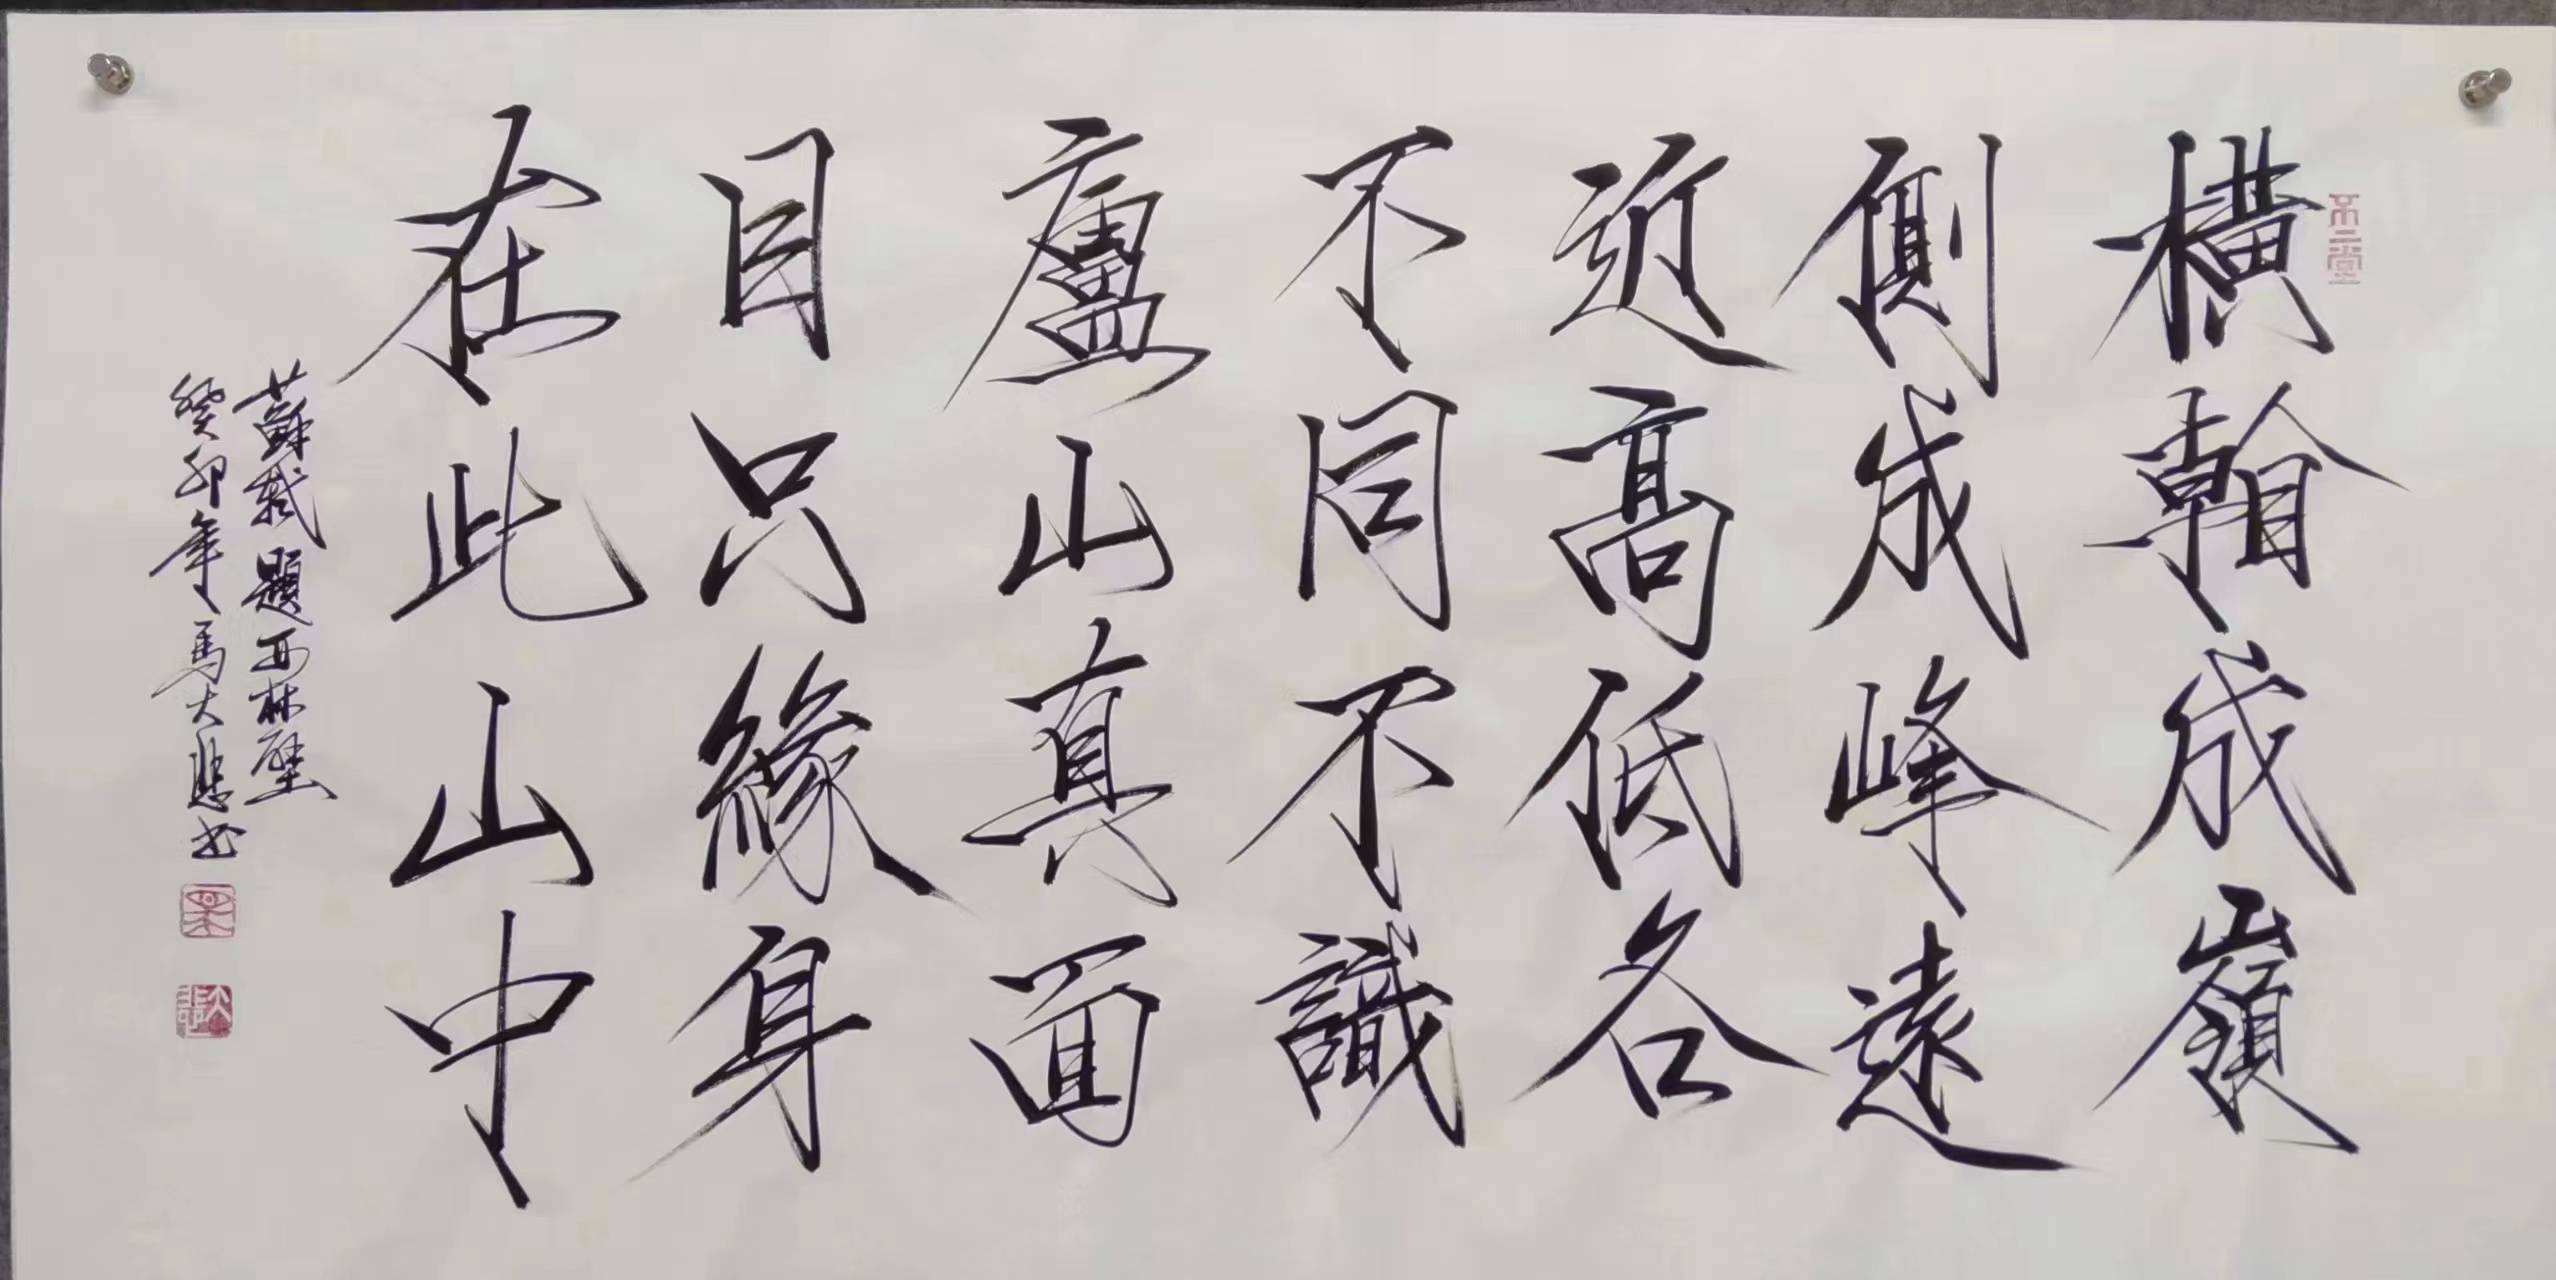 不二堂
橫看成嶺
側成峰遠
近高低各
不同不識
廬山真面
目只緣身
在此山中
蘇軾題西林壁
癸卯年馬大悲书
大悲